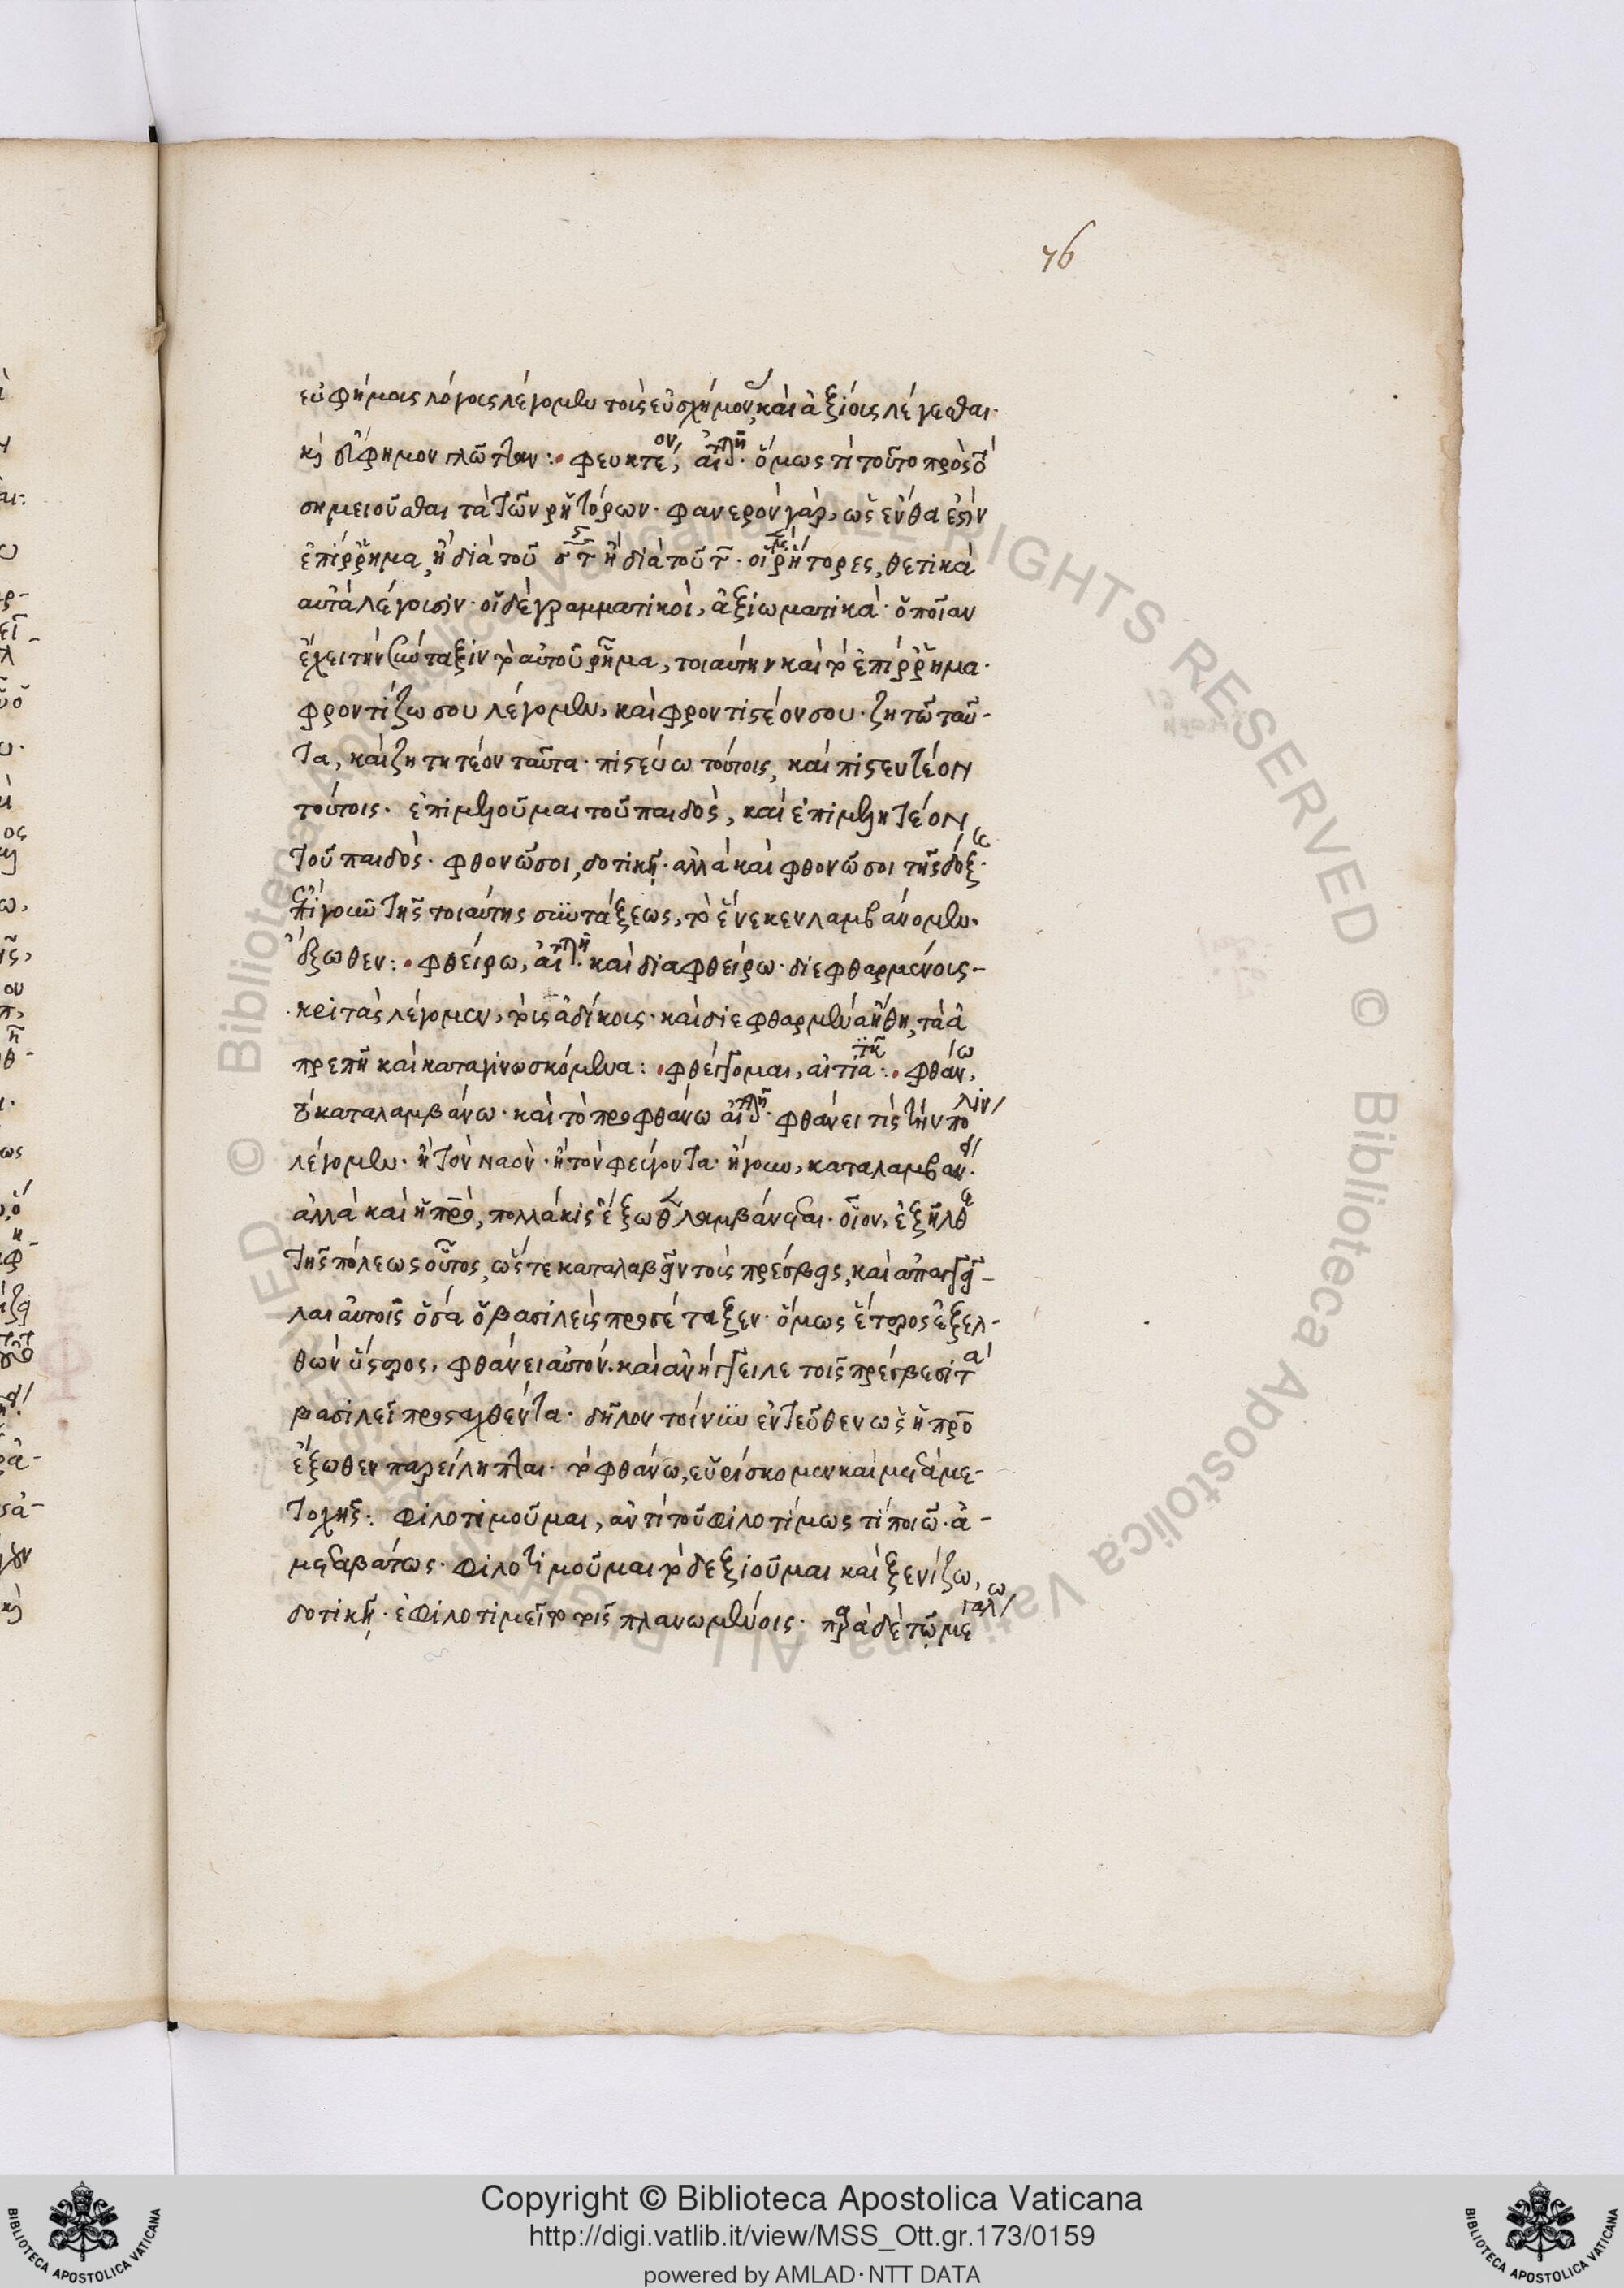 76
εὐφήμοις λόγοις λέγομεν τοὺς εὐσχήμονας καὶ ἀξίους λέγεσθαι·
καὶ εὔφημον γλῶτταν :· φευκτέον, αἰτιατικῇ· ὅμως τὶ τοῦτο πρὸς τὸ
σημειοῦσθαι τὰ τῶν ῥητόρων· φανερὸν γὰρ, ὡς ἔνθα ἐστὶν
ἐπίρρημα, ἢ διὰ τοῦ στ ἢ διὰ τοῦ τ· οἱ μὲν ῥήτορες, θετικὰ
αὐτὰ λέγουσιν· οἱ δὲ γραμματικοὶ, ἀξιωματικά· ὁποίαν
ἔχει τὴν σύνταξιν τὸ αὐτοῦ ῥῆμα, τοιαύτην καὶ τὸ ἐπίρρημα·
φροντίζω σου λέγομεν, καὶ φροντιστέον σου· ζητῶ ταῦ-
τα, καὶ ζητητέον ταῦτα· πιστεύω τούτοις, καὶ πιστευτέον
τούτοις· ἐπιμελοῦμαι τοῦ παιδὸς, καὶ ἐπιμελητέον
τοῦ παιδός· φθονῶ σοι, δοτικῇ· ἀλλὰ καὶ φθονῶ σοι τῆς δόξης·
ἐπὶ γοῦν τῆς τοιαύτης συντάξεως, τὸ ἕνεκεν λαμβάνομεν
ἔξωθεν :· φθείρω, αἰτιατικῇ· καὶ διαφθείρω· διεφθαρμένους
κριτὰς λέγομεν, τοὺς ἀδίκους· καὶ διεφθαρμένα ἤθη, τὰ ἀ
πρεπῆ καὶ καταγινωσκόμενα :· φθέγγομαι, αἰτιατικῇ :· φθάνω,
τὸ καταλαμβάνω· καὶ τὸ προφθάνω αἰτιατικῇ· φθάνει τὶς τὴν πόλιν
λέγομεν· ἢ τὸν ναὸν· ἢ τὸν φεύγοντα· ἤγουν, καταλαμβάνει·
ἀλλὰ καὶ ἡ πρὸ, πολλάκις ἔξωθεν λαμβάνεται· οἷον, ἐξῆλθε
τῆς πόλεως οὗτος, ὥστε καταλαβεῖν τοὺς πρέσβεις, καὶ ἀπαγγεῖ-
λαι αὐτοῖς ὅσα ὁ βασιλεὺς προσέταξεν· ὅμως ἕτερος ἐξελ-
θὼν ὕστερος, φθάνει αὐτόν· καὶ ἀνήγγειλε τοῖς πρέσβεσι τὰ
βασιλεῖ προσταχθέντα· δῆλον τοίνυν ἐντεῦθεν ὡς ἡ πρὸ
ἔξωθεν παρείληπται· τὸ φθάνω, εὑρίσκομεν καὶ μετὰ με-
τοχῆς :· φιλοτιμοῦμαι, ἀντὶ τοῦ φιλοτίμως τὶ ποιῶ· ἀ-
μεταβάτως· φιλοτιμοῦμαι τὸ δεξιοῦμαι καὶ ξενίζω,
δοτικῇ· ἐφιλοτιμεῖτο τοῖς πλανωμένοις· παρὰ δὲ τῷ μεγάλῳ
Copyright © Biblioteca Apostolica Vaticana
http://digi.vatlib.it/view/MSS_Ott.gr.173/0159
powered by AMLAD·NTT DATA